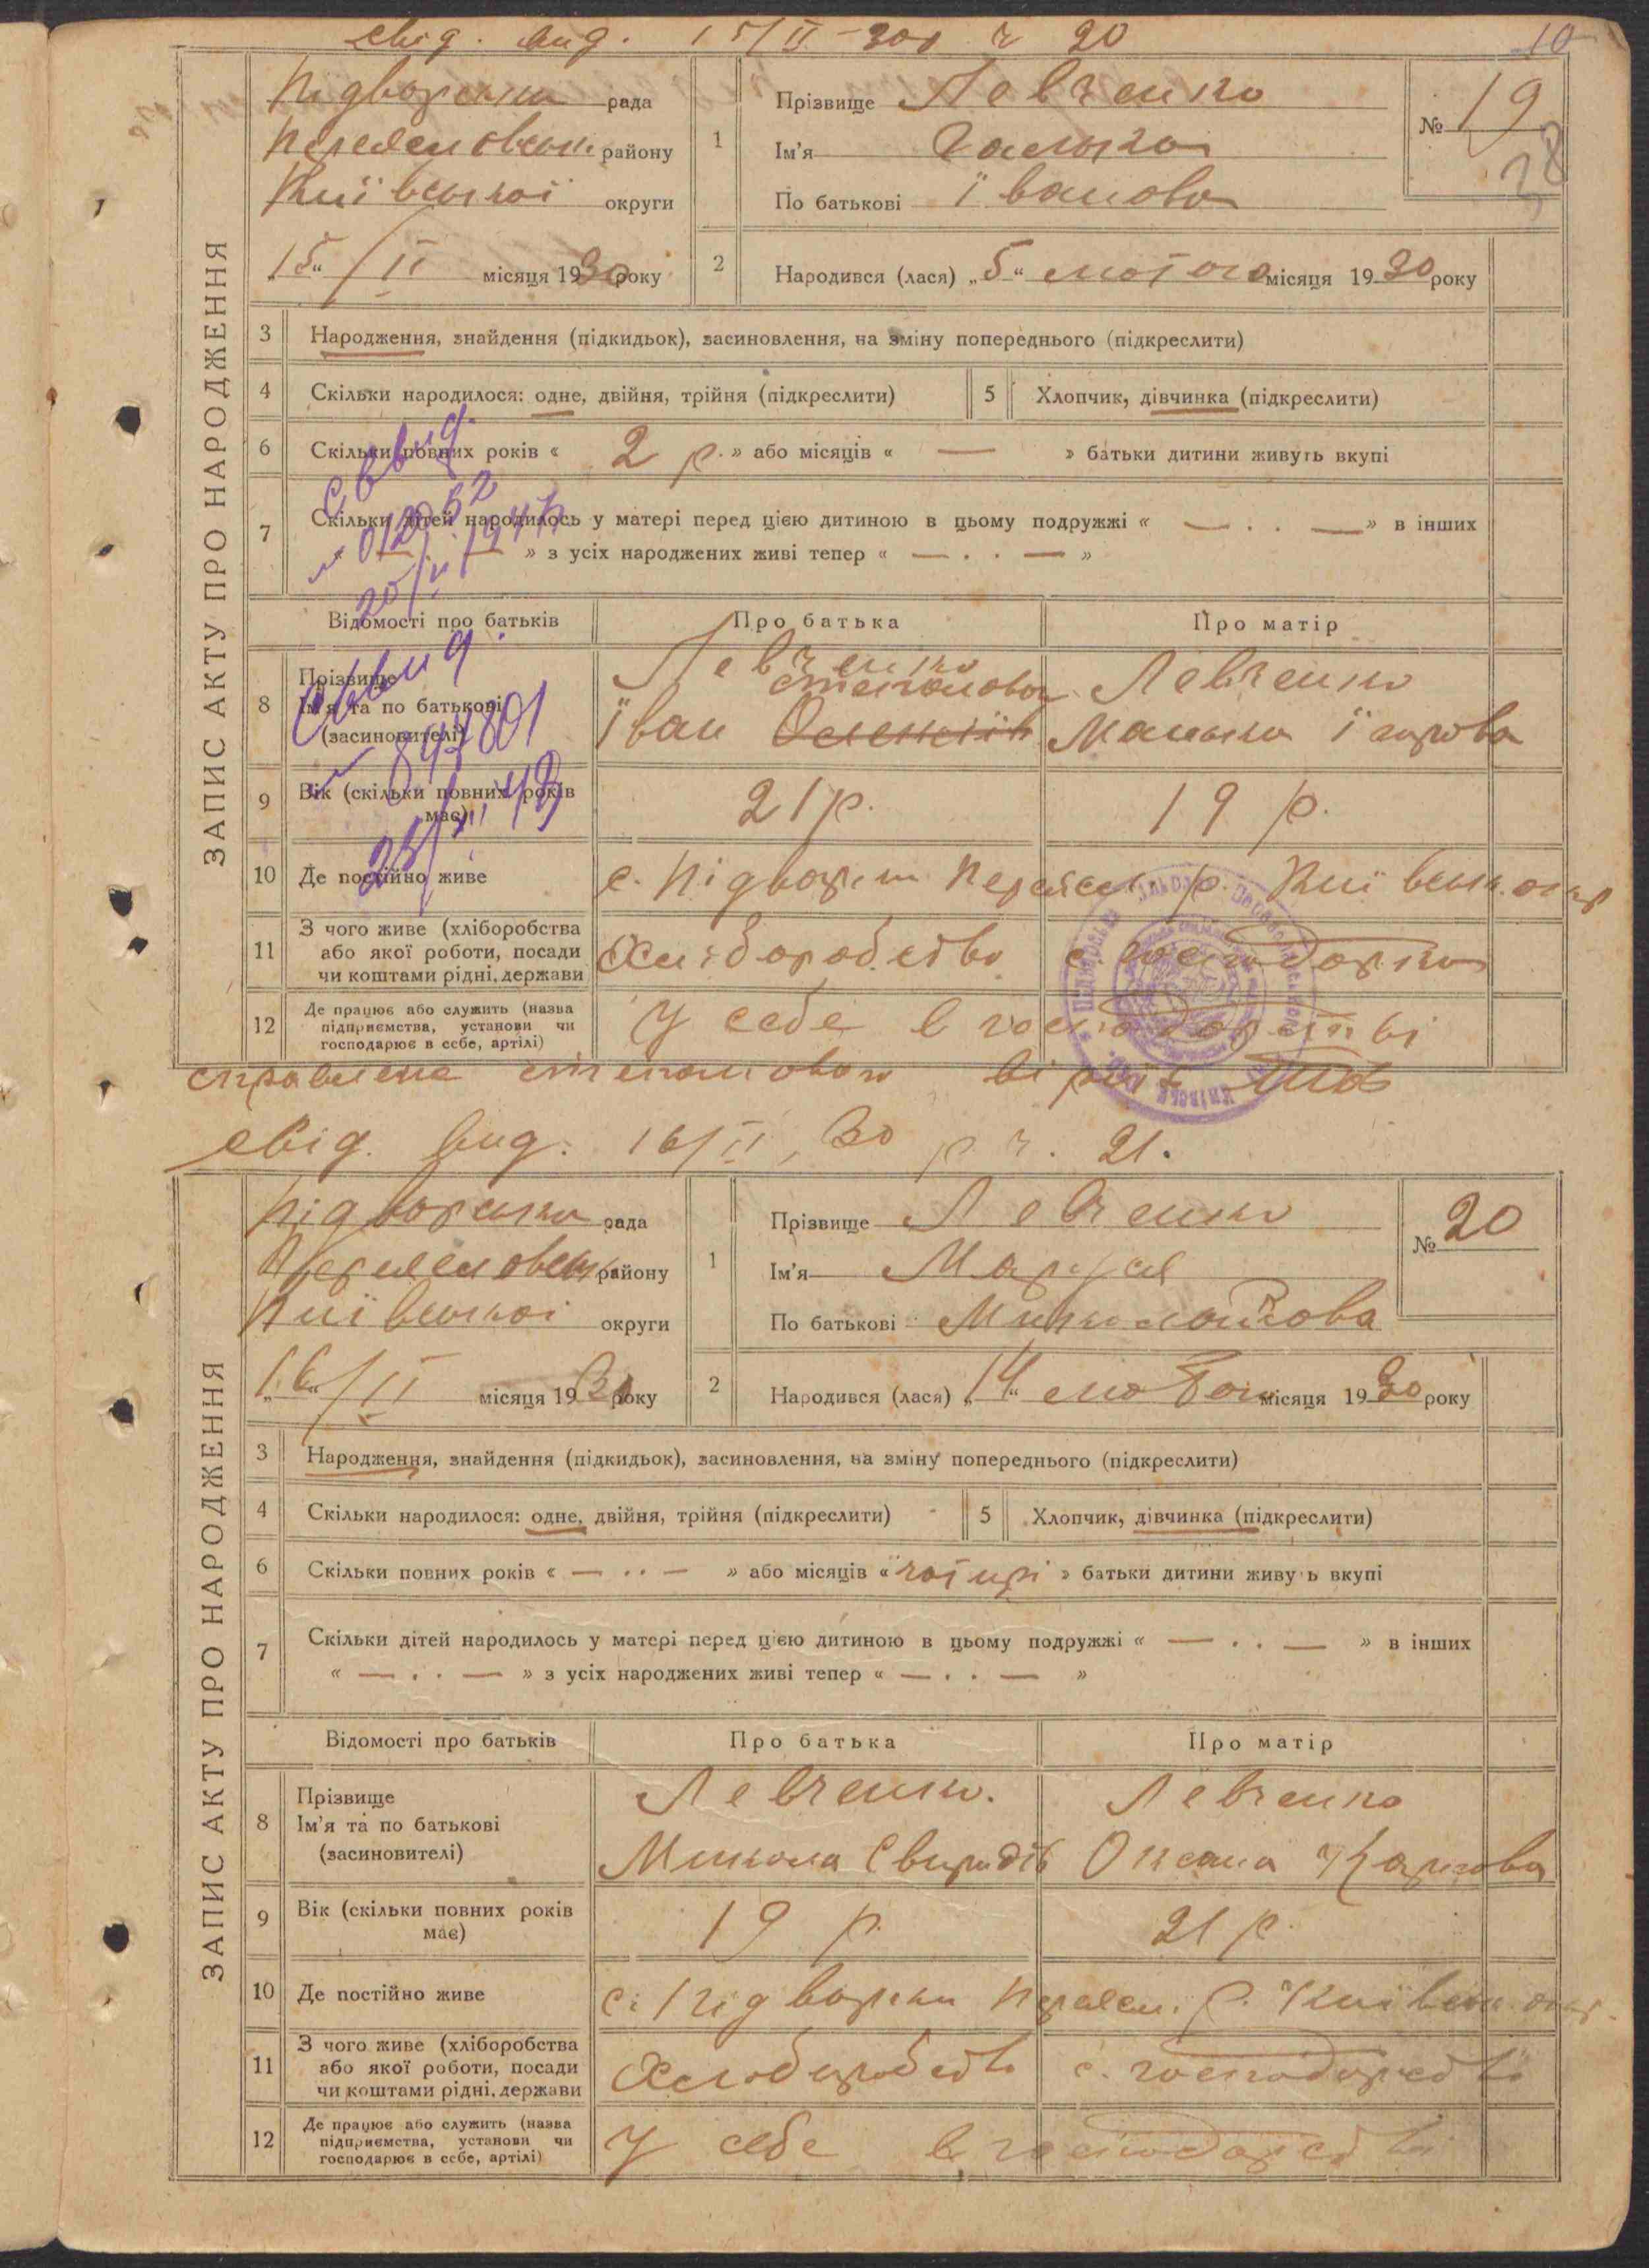 свід. вид. 15/II-30р ч 20
10
ЗАПИС АКТУ ПРО НАРОДЖЕННЯ
Підворська рада
району
Київської округи
"15" / II місяця 1930 року
1
Прізвище Левченко
Ім'я Галька
По батькові Іванова
№ 19
38
2
Народився (лася) „5" лютого місяця 1930 року
3 Народження, знайдення (підкидьок), засиновлення, на зміну попереднього (підкреслити)
4 Скільки народилося: одне, двійня, трійня (підкреслити)
5 Хлопчик, дівчинка (підкреслити)
6 Скільки повних років « 2 р. » або місяців « — » батьки дитини живуть вкупі
7 Скільки дітей народилось у матері перед цією дитиною в цьому подружжі « — . . — » в інших
» з усіх народжених живі тепер « — . . — »
Відомості про батьків
Про батька
Про матір
8 Прізвище
Ім'я та по батькові
(засновителі)
Левченко
Степанова
Іван
Левченко
9 Вік (скільки повних років
має)
21 р.
19 р.
10 Де постійно живе
с. Підворки Переясл. р. Київськ. окр
11 З чого живе (хліборобства
або якої роботи, посади
чи коштами рідні, держави
Хліборобство
с. господарка
12 Де працює або служить (назва
підприємства, установи чи
господарює в себе, артілі)
У себе в господарстві
свід. вид. 16/II, 30 р ч. 21.
ЗАПИС АКТУ ПРО НАРОДЖЕННЯ
Підворська рада
району
Київської округи
"16" / II місяця 1930 року
1
Прізвище Левченко
Ім'я Маруся
По батькові Миколаївова
№ 20
2
Народився (лася) „14" лютого місяця 1930 року
3 Народження, знайдення (підкидьок), засиновлення, на зміну попереднього (підкреслити)
4 Скільки народилося: одне, двійня, трійня (підкреслити)
5 Хлопчик, дівчинка (підкреслити)
6 Скільки повних років « — . . — » або місяців « чотирі » батьки дитини живуть вкупі
7 Скільки дітей народилось у матері перед цією дитиною в цьому подружжі « — . . — » в інших
« — . . — » з усіх народжених живі тепер « — . . — »
Відомості про батьків
Про батька
Про матір
8 Прізвище
Ім'я та по батькові
(засиновителі)
Левченко.
Микола Свиридів
Левченко
Оксана Карпова
9 Вік (скільки повних років
має)
19 р.
21 р.
10 Де постійно живе
с. Підворки Переясл. р. Київськ. окр.
11 З чого живе (хліборобства
або якої роботи, посади
чи коштами рідні, держави
Хлоборобство
с. господарстві
12 Де працює або служить (назва
підприємства, установи чи
господарює в себе, артілі)
У себе в господарстві